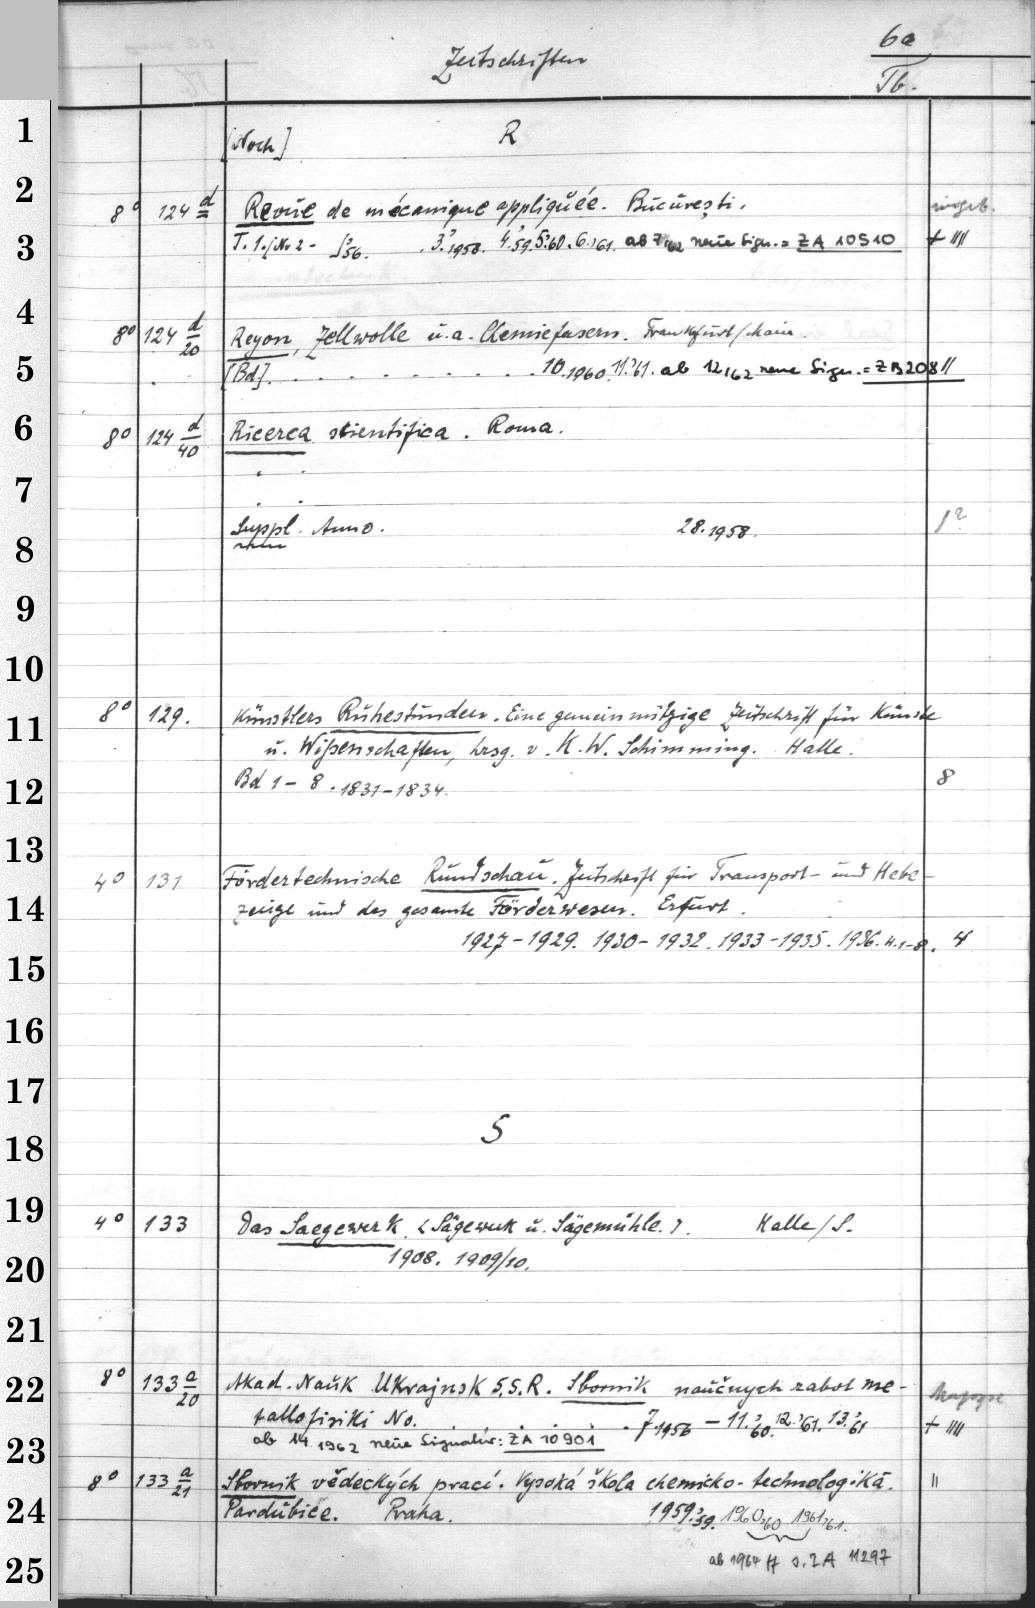 Zeitschriften 6a
Tb.
1 [Noch] R
2 8° 124 d Revue de mécanique appliquée. București.
3 T. 1. 3.1958. 4.59. 5.60. 6.61. ab 7,62 neue Sign. = ZA 10510 + IIII
4 8° 124 d/20 Reyon, Zellwolle u. a. Chemiefasern. Frankfurt/Main.
5 [Bd]. . . . . . . . . . 10.1960. 11.61. ab 12,62 neue Sign. = ZB 208 II
6 8° 124 d/40 Ricerca scientifica. Roma.
7
8 Suppl. Anno. 28.1958. 1?
9
10
11 8° 129. Künstlers Ruhestunden. Eine gemeinnützige Zeitschrift für Künste
u. Wißenschaften, hrsg. v. K. W. Schimming. Halle.
12 Bd 1 - 8. 1831-1834. 8
13
4° 131 Fördertechnische Rundschau. Zeitschrift für Transport- und Hebe-
14 zeuge und das gesamte Förderwesen. Erfurt.
1927-1929. 1930-1932. 1933-1935. 1936. H. 1-8. 4
15
16
17
18 S
19 4° 133 Das Saegewerk. <Sägewerk u. Sägemühle.>. Halle/S.
20 1908. 1909/10.
21
22 8° 133 a/20 Akad. Nauk Ukrajnsk S.S.R. Sbornik naučnych rabot me-
tallofiziki No. . . . . . . . 7 1956 - 11.60. 12.61. 13.61 + IIII
23 ab 14.1962 neue Signatur: ZA 10901
8° 133 a/21 Sborník vědeckých prací. Vysoká škola chemicko-technologiká. II
24 Pardubice. Praha. 1959.59. 1960,60 1961,61.
25 ab 1964 ff s. ZA 11297